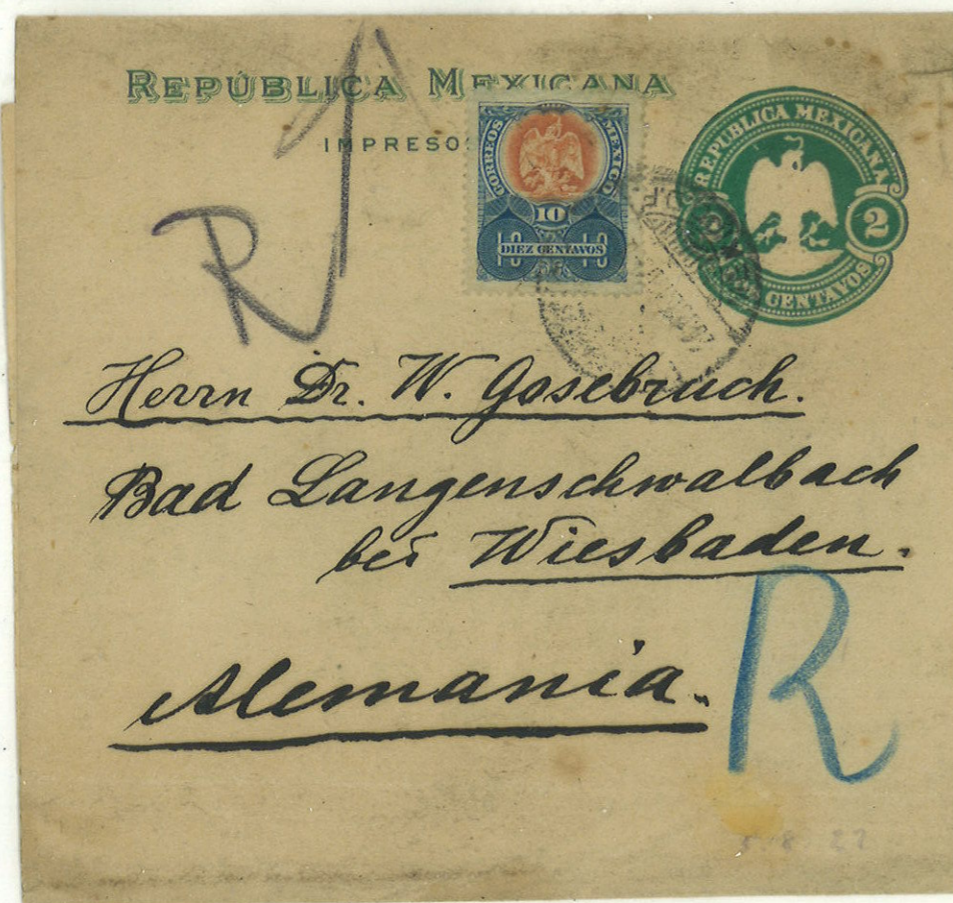 REPÚBLICA MEXICANA
IMPRESOS
CORREOS MEXICO
10
10 DIEZ CENTAVOS 10
REPUBLICA MEXICANA
2
CENTAVOS
R
Herrn Dr. W. Gosebruch.
Bad Langenschwalbach
bei Wiesbaden.
Alemania.
R